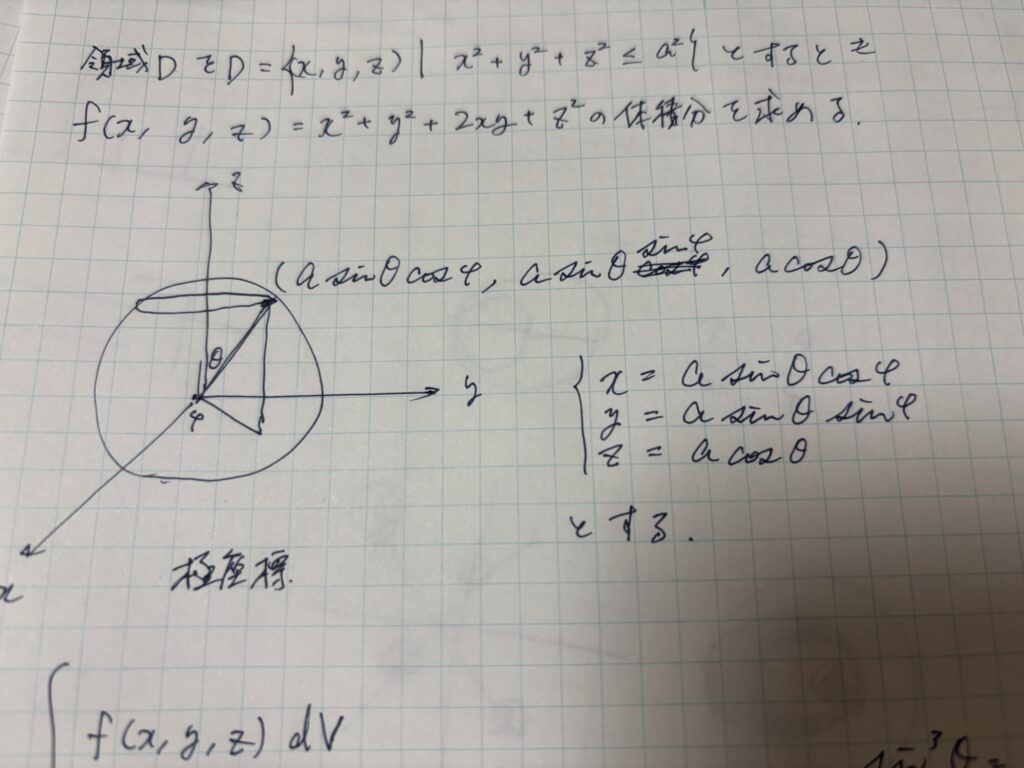 領域DをD = {(x, y, z) | x² + y² + z² ≤ a²} とするとき
f(x, y, z) = x² + y² + 2xy + z² の体積分を求める.
z
(a sinθ cosφ, a sinθ sinφ, a cosθ)
θ
y
φ
x = a sinθ cosφ
y = a sinθ sinφ
z = a cosθ
とする.
x
極座標
f(x, y, z) dV
sin³θ =